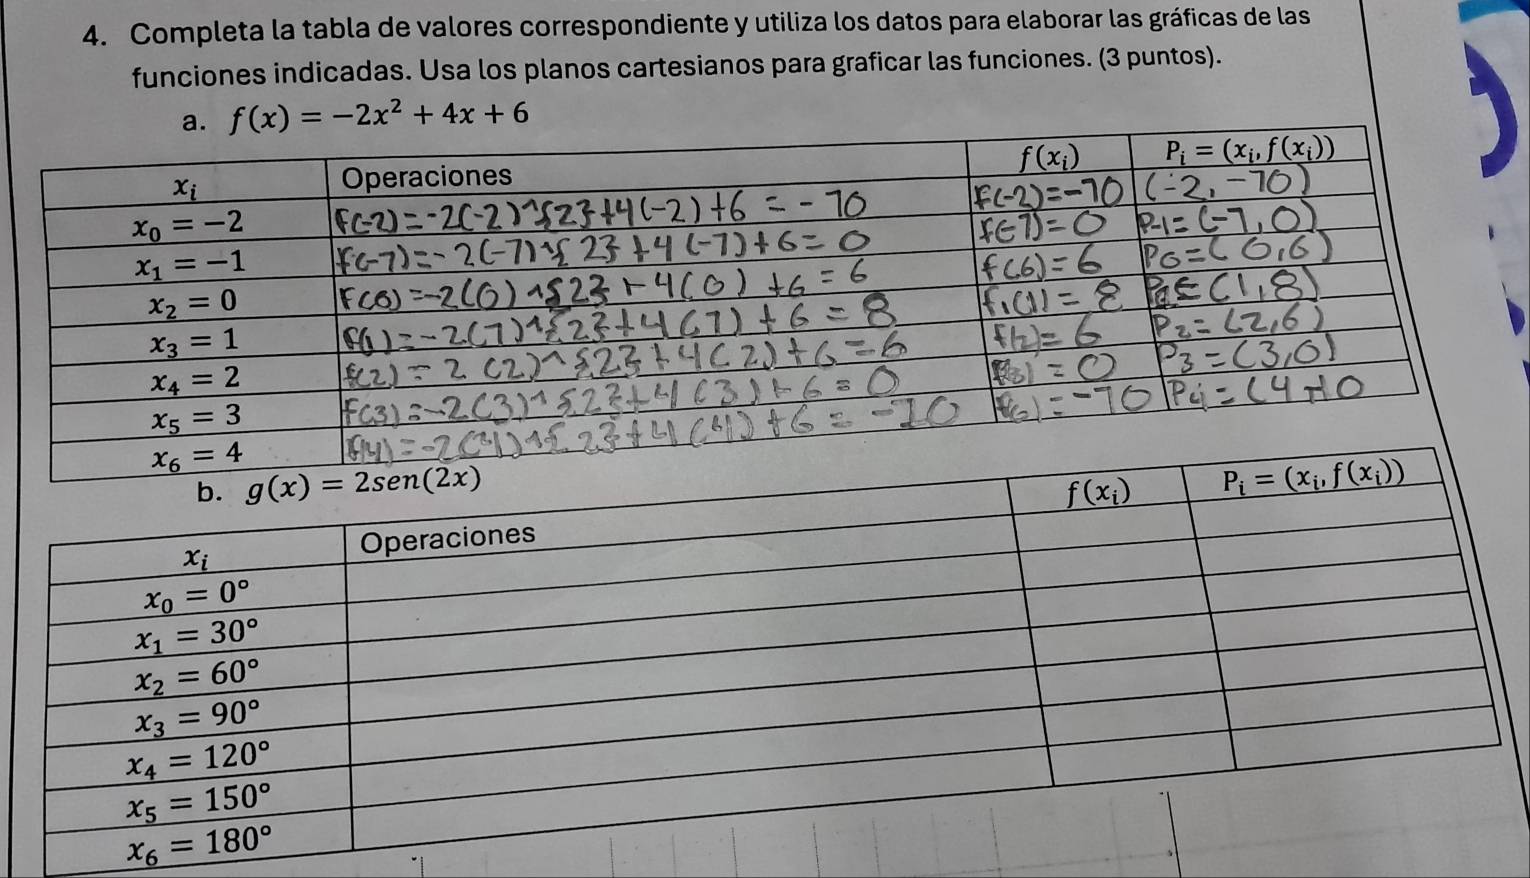 4. Completa la tabla de valores correspondiente y utiliza los datos para elaborar las gráficas de las
funciones indicadas. Usa los planos cartesianos para graficar las funciones. (3 puntos).
a. f(x) = −2x² + 4x + 6
xᵢ Operaciones f(xᵢ) Pᵢ = (xᵢ, f(xᵢ))
x₀ = −2 F(-2)=-2(-2)^{2}+4(-2)+6=-10 F(-2)=-10 (-2,-10)
x₁ = −1 F(-1)=-2(-1)^{2}+4(-1)+6=0 f(-1)=0 P-1=(-1,0)
x₂ = 0 F(0)=-2(0)^{2}+4(0)+6=6 f(6)=6 P0=(0,6)
x₃ = 1 f(1)=-2(1)^{2}+4(1)+6=8 f,(1)=8 =(1,8)
x₄ = 2 f(2)=2(2)^{2}+4(2)+6=6 f(2)=6 P2=(2,6)
x₅ = 3 F(3)=-2(3)^{2}+4(3)+6=0 (3)=0 P3=(3,0)
x₆ = 4 f(4)=-2(4)^{2}+4(4)+6=-10 =-10 P4=(4,-10
b. g(x) = 2sen(2x)
xᵢ Operaciones f(xᵢ) Pᵢ = (xᵢ, f(xᵢ))
x₀ = 0°
x₁ = 30°
x₂ = 60°
x₃ = 90°
x₄ = 120°
x₅ = 150°
x₆ = 180°